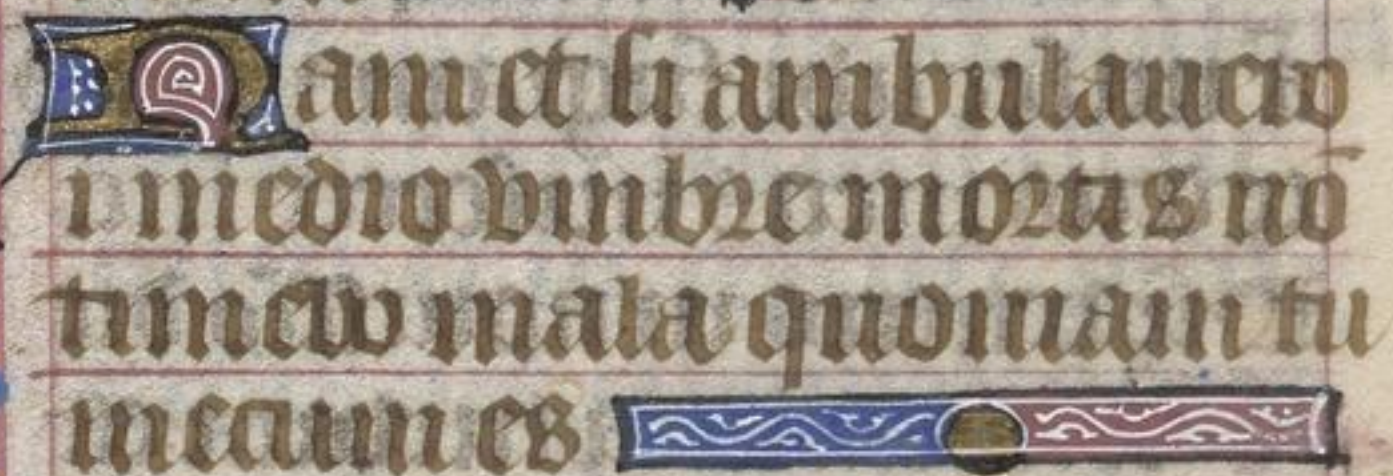 Nam et si ambulauero
i medio vmbre mortis nō
timebo mala quoniam tu
mecum es